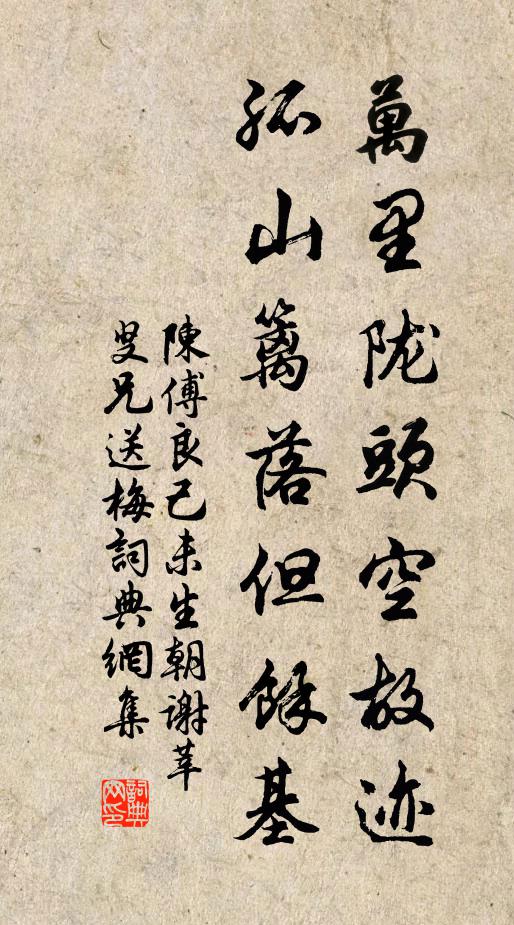 萬里陇頭空故迹
孤山篱落但餘基
陳傅良己未生朝謝莘
叟兄送梅詞典網集
詞典网印